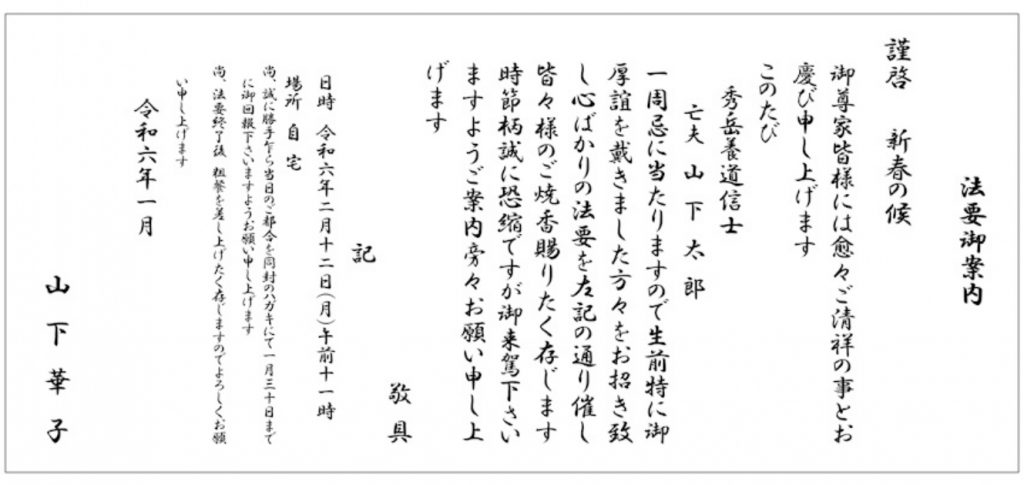 法要御案内
謹啓　新春の候
御尊家皆様には愈々ご清祥の事とお
慶び申し上げます
このたび
秀岳養道信士
亡夫 山下太郎
一周忌に当たりますので生前特に御
厚誼を戴きました方々をお招き致
し心ばかりの法要を左記の通り催し
皆々様のご焼香賜りたく存じます
時節柄誠に恐縮ですが御来駕下さい
ますようご案内旁々お願い申し上
げます
敬具
記
日時 令和六年二月十二日(月)午前十一時
場所 自宅
尚、誠に勝手乍ら当日のご都合を同封のハガキにて一月三十日まで
に御回報下さいますようお願い申し上げます
尚、法要終了後、粗餐を差し上げたく存じますのでよろしくお願
い申し上げます
令和六年一月
山下華子